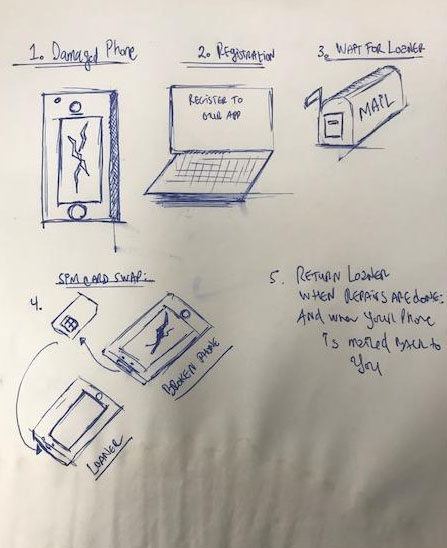 1. Damaged Phone
2. REGISTRATION
3. WAIT FOR LOANER
REGISTER TO
OUR APP
MAIL
SIM CARD SWAP:
4.
BROKEN PHONE
LOANER
5. RETURN LOANER
WHEN REPAIRS ARE DONE:
And when your Phone
is mailed BACK to
You